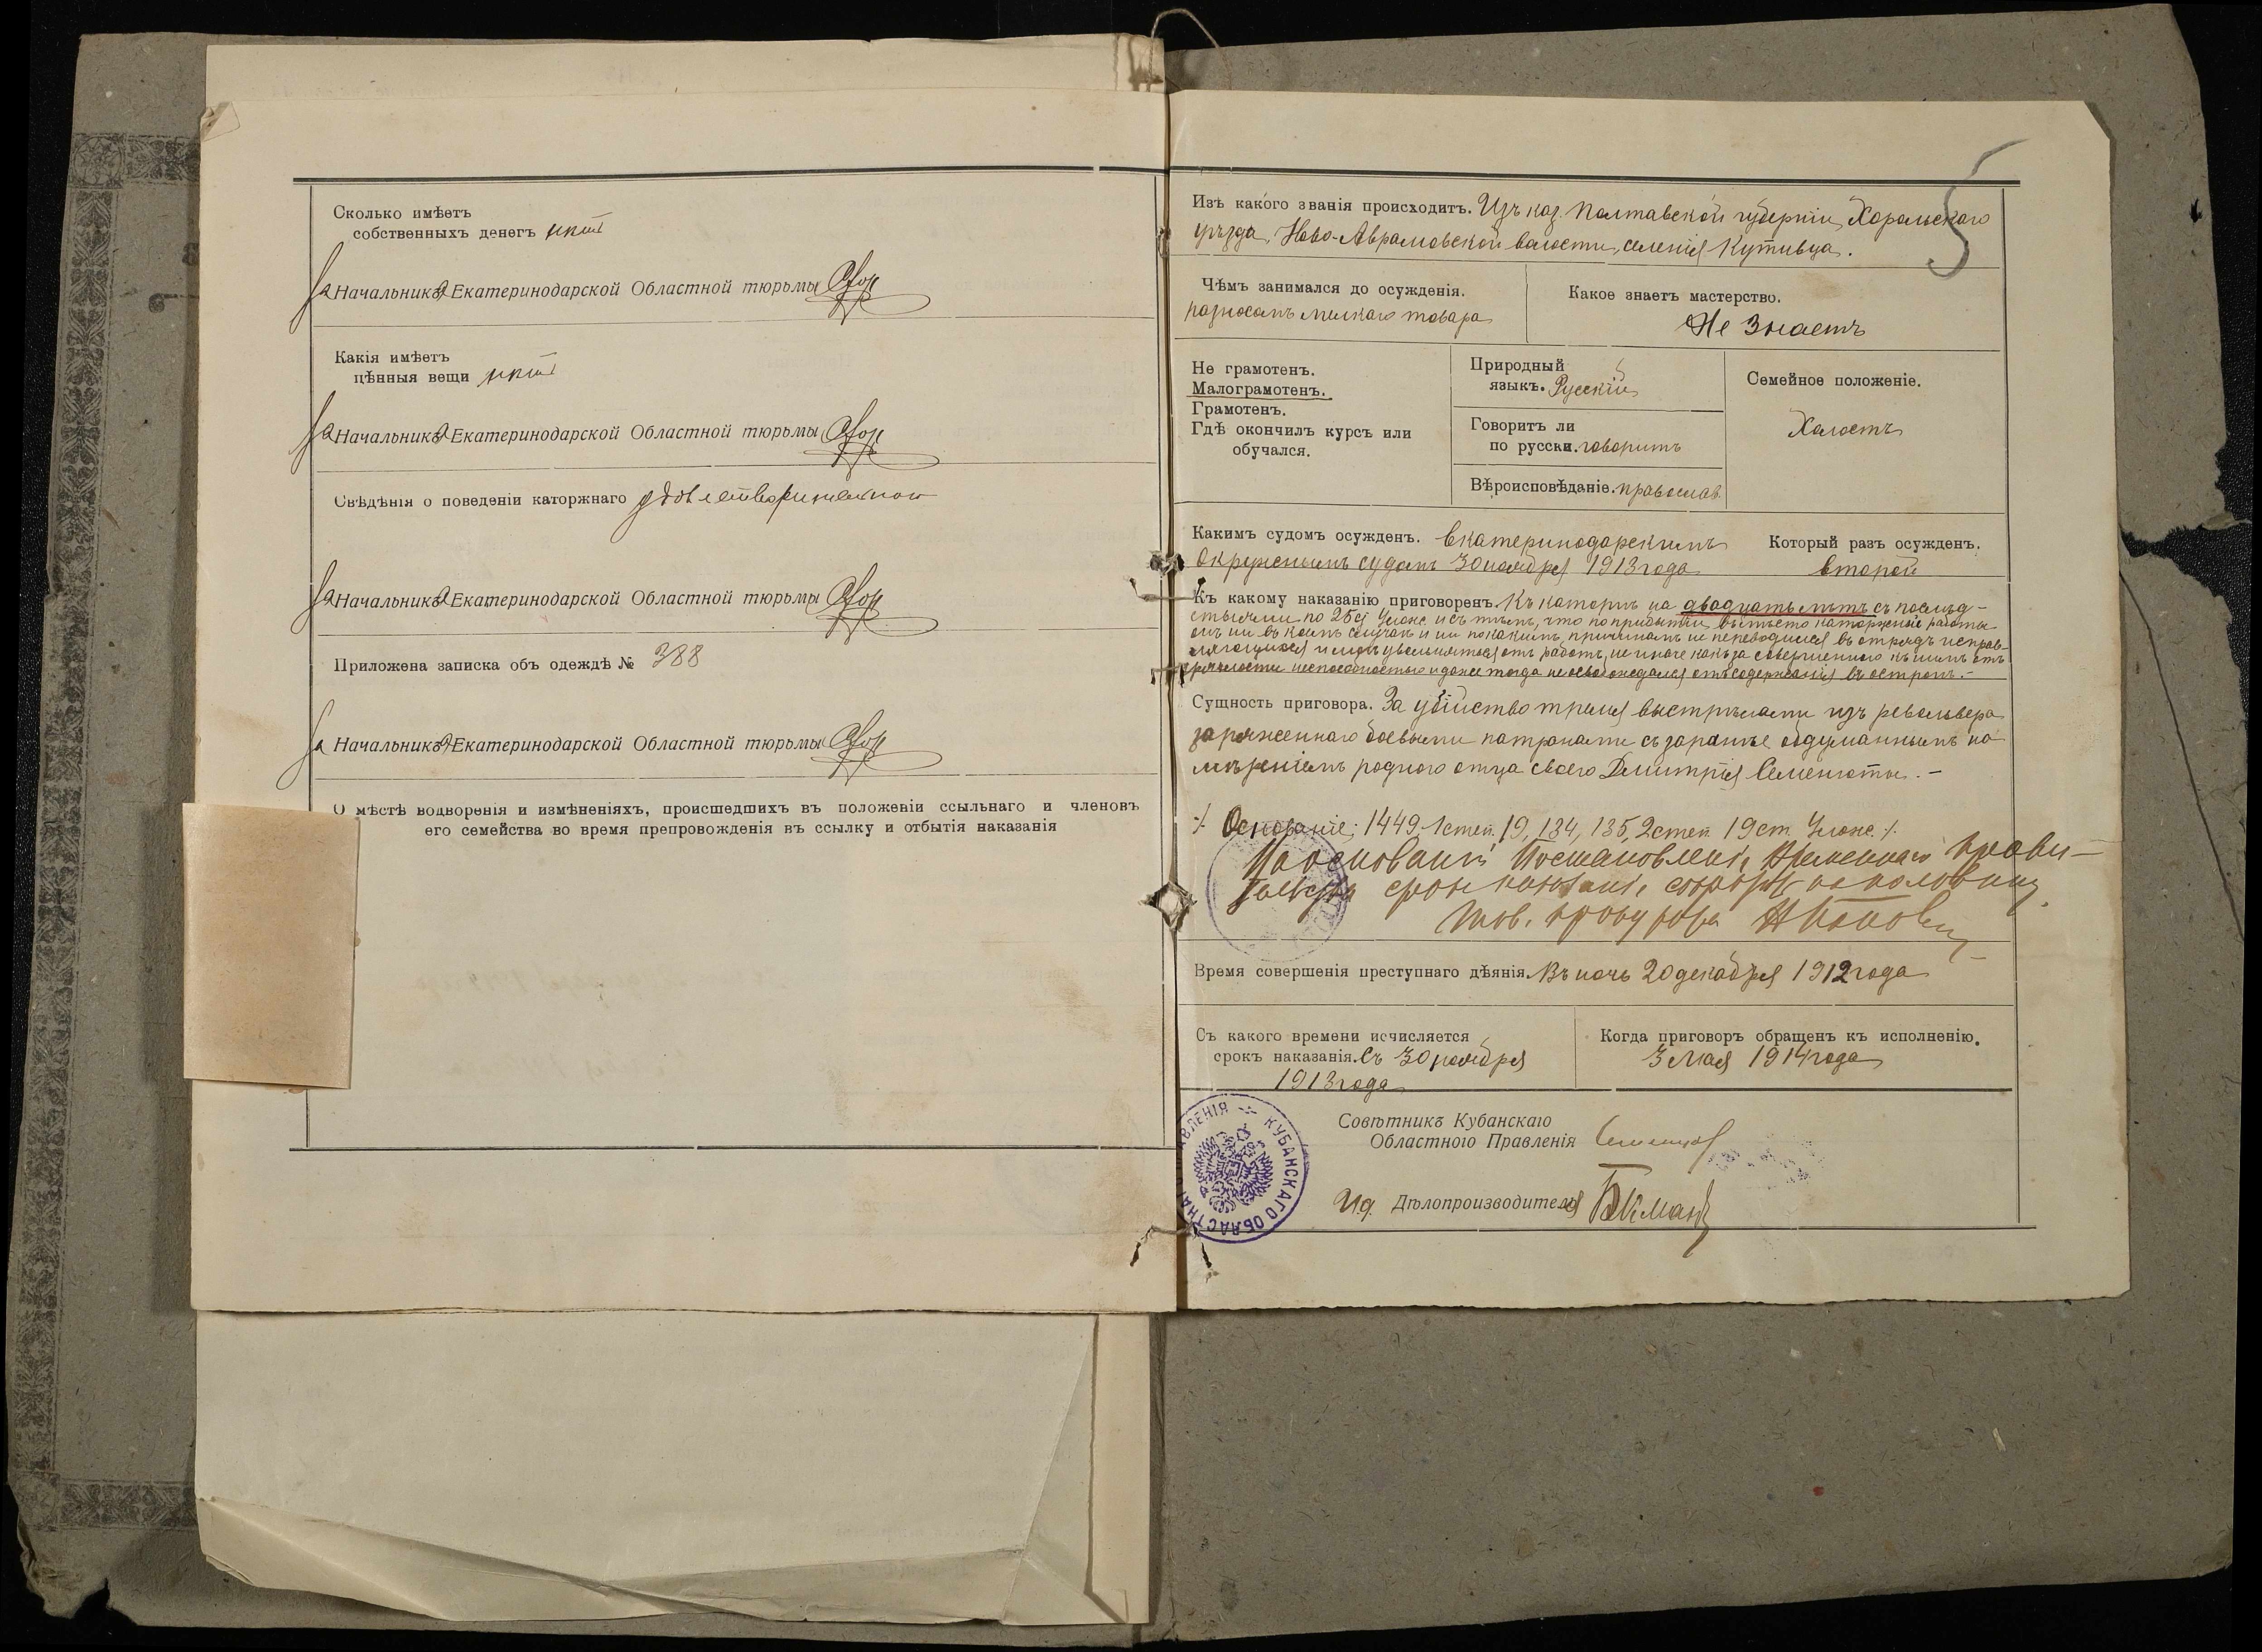 Сколько имѣетъ
собственныхъ денегъ нѣтъ
За Начальника Екатеринодарской Областной тюрьмы
Какія имѣетъ
цѣнныя вещи нѣтъ
За Начальника Екатеринодарской Областной тюрьмы
Свѣдѣнія о поведеніи каторжнаго удовлетворительное
За Начальника Екатеринодарской Областной тюрьмы
Приложена записка объ одеждѣ № 388
За Начальника Екатеринодарской Областной тюрьмы
О мѣстѣ водворенія и измѣненіяхъ, происшедшихъ въ положеніи ссыльнаго и членовъ
его семейства во время препровожденія въ ссылку и отбытія наказанія
5
Изъ какого званія происходитъ. Изъ каз. Полтавской губерніи, Хорольскаго
уѣзда, Ново-Аврамовской волости, селенія Кутивца.
Чѣмъ занимался до осужденія.
разносомъ мелкаго товара
Какое знаетъ мастерство.
Не знаетъ
Не грамотенъ.
Малограмотенъ.
Грамотенъ.
Гдѣ окончилъ курсъ или
обучался.
Природный
языкъ. Русскій
Говоритъ ли
по русски. говоритъ
Вѣроисповѣданіе. православ.
Семейное положеніе.
Холостъ
Какимъ судомъ осужденъ. Екатеринодарскимъ
Окружнымъ судомъ 30 ноября 1913 года
Который разъ осужденъ.
второй
Къ какому наказанію приговоренъ. Къ каторгѣ на двадцать лѣтъ съ послѣд-
ствіями по 25 ст. Улож. и съ тѣмъ, что по прибытіи въ мѣсто каторжной работы
онъ ни въ коемъ случаѣ и ни по какимъ причинамъ не переводился въ отрядъ исправ-
ляющихся и увольнялся отъ работъ не иначе какъ за совершенною къ нимъ отъ
дряхлости неспособностью и даже тогда не освобождался отъ содержанія въ острогѣ.-
Сущность приговора. За убійство тремя выстрѣлами изъ револьвера
заряженнаго боевыми патронами съ заранѣе обдуманнымъ на
мѣреніемъ родного отца своего Дмитрія Семенюты.-
·/. Основаніе: 1449. 1 степ. 19, 134, 135, 2 степ. 19 ст. Улож. ·/.
На основаніи Постановленія Временнаго Прави-
тельства срокъ наказанія сокращ. на половину.
Тов. прокурора
Время совершенія преступнаго дѣянія. Въ ночь 20 декабря 1912 года
Съ какого времени исчисляется
срокъ наказанія. Съ 30 ноября
1913 года
Когда приговоръ обращенъ къ исполненію.
3 Мая 1914 года
Совѣтникъ Кубанскаго
Областного Правленія
И.д. Дѣлопроизводителя
КУБАНСКАГО ОБЛАСТНАГО ПРАВЛЕНІЯ